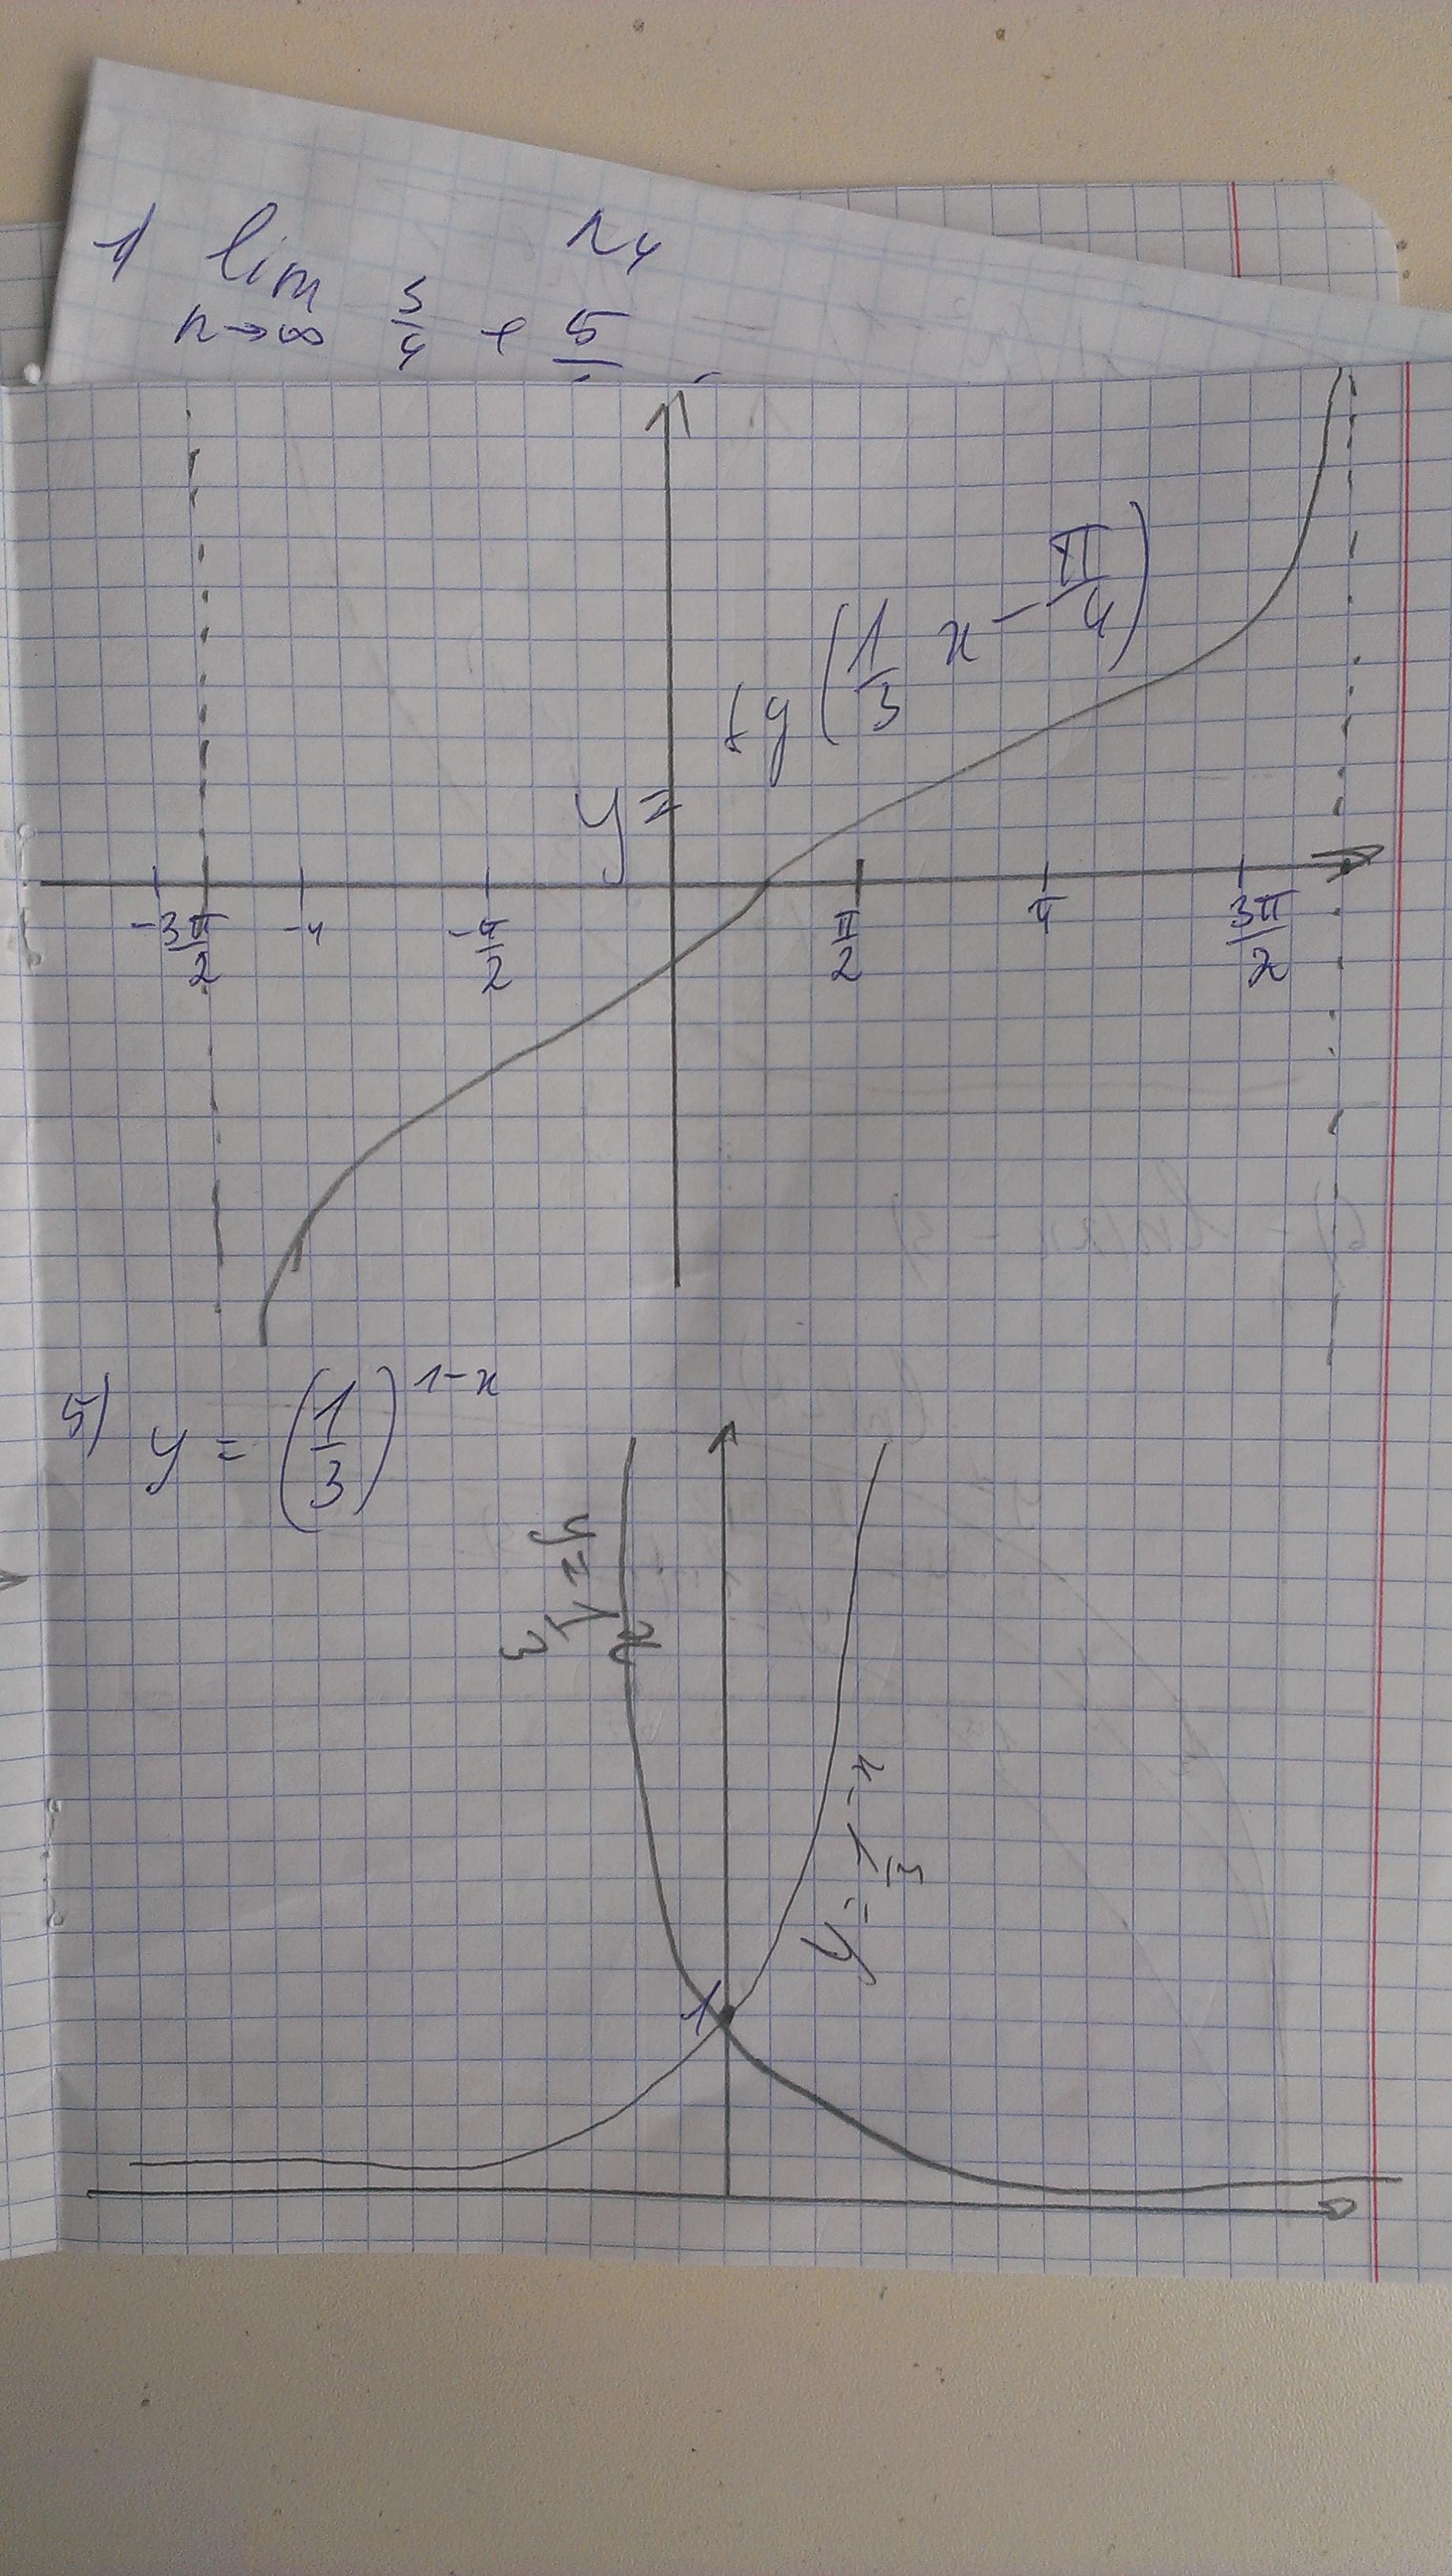 1) lim n→∞ 3/4 + 5
n4
y = tg(1/3 x - π/4)
-3π/2 -π/2 π/2 π 3π/2
5) y = (1/3)^(1-x)
y = 1/3^x
y = 1/3^-x
1